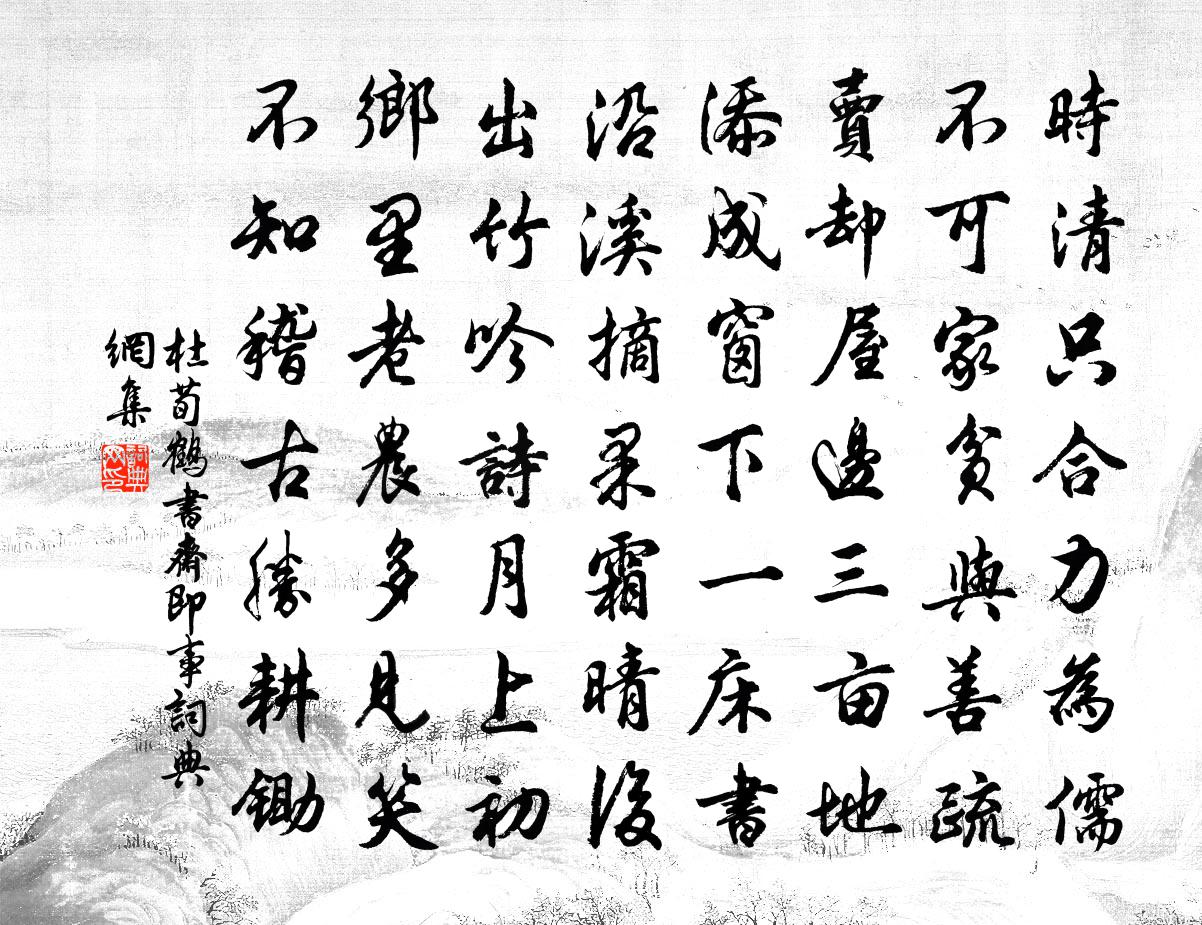 時清只合力為儒
不可家貧與善疏
賣却屋邊三亩地
添成窗下一床書
沿溪摘果霜晴後
出竹吟詩月上初
鄉里老農多見笑
不知稽古勝耕鋤
杜荀鶴書齋即事詞典
網集
詞典
网印